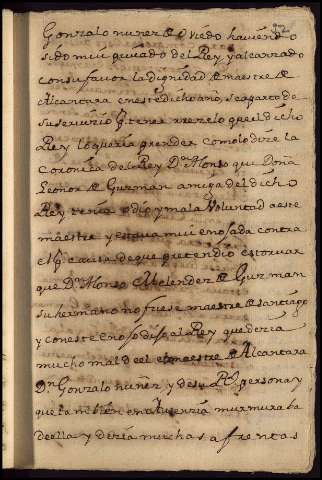 Gonzalo nuñez de oviedo haviendo
sido mui privado del Rey y alcanzado
con su favor la dignidad de maestre de
Alcantara en este dicho año, se aparto de
su servicio p.r tener rrezelo que el dicho
Rey lo queria prender como lo dize la
coronica del Rey Dn Alonso que Doña
Leonor de Guzman amiga del dicho
Rey tenia odio y mala Voluntad a este
maestre y estava mui enojada contra
el p.r causa de que pretendio estorvar
que Dn Alonso Melendez de Guzman
su hermano no fuese maestre de santiago
y con este enojo dijo al Rey que decia
mucho mal de el maestre de Alcantara
Dn Gonzalo nuñez y de su Rl persona y
que tambien en Ausenzia murmuraba
de ella y dezia muchas afrentas